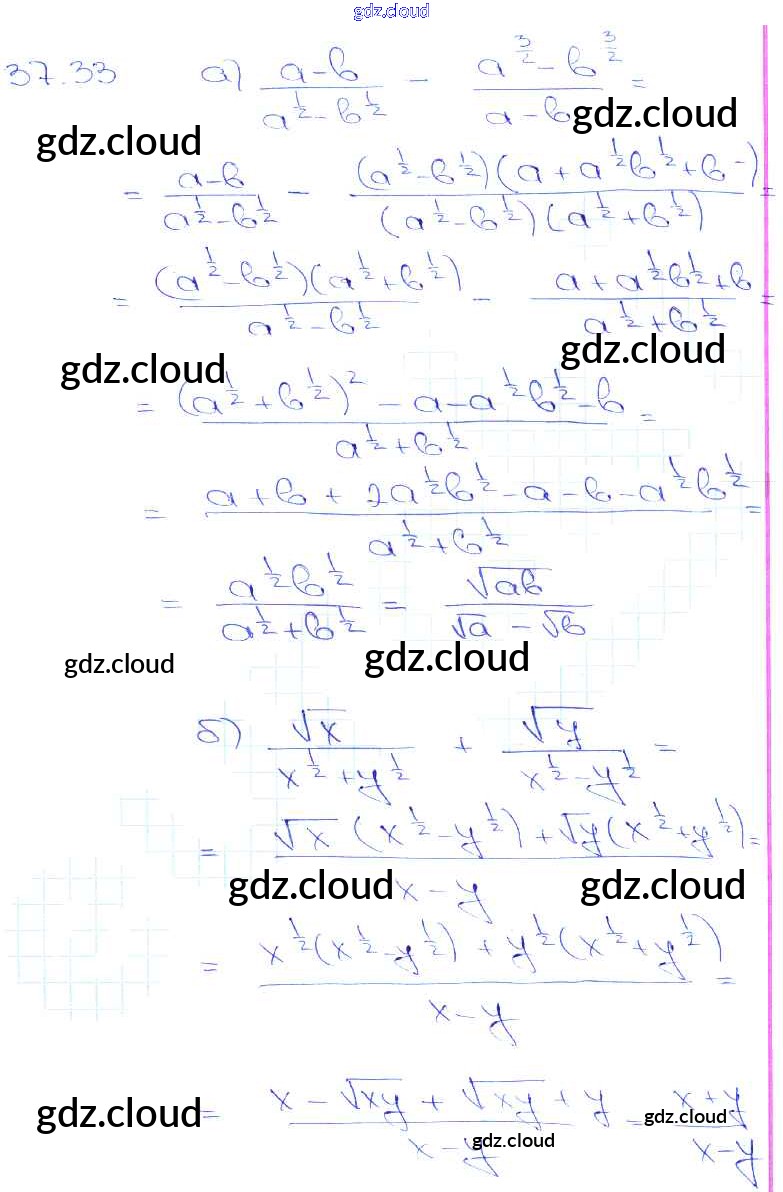 gdz.cloud
37.33 а) (a-b)/(a^(1/2)-b^(1/2)) - (a^(3/2)-b^(3/2))/(a-b) =
gdz.cloud gdz.cloud
= (a-b)/(a^(1/2)-b^(1/2)) - ((a^(1/2)-b^(1/2))(a+a^(1/2)b^(1/2)+b-))/((a^(1/2)-b^(1/2))(a^(1/2)+b^(1/2))) =
= ((a^(1/2)-b^(1/2))(a^(1/2)+b^(1/2)))/(a^(1/2)-b^(1/2)) - (a+a^(1/2)b^(1/2)+b)/(a^(1/2)+b^(1/2)) =
gdz.cloud gdz.cloud
= ((a^(1/2)+b^(1/2))^2-a-a^(1/2)b^(1/2)-b)/(a^(1/2)+b^(1/2)) =
= (a+b+2a^(1/2)b^(1/2)-a-b-a^(1/2)b^(1/2))/(a^(1/2)+b^(1/2)) =
= (a^(1/2)b^(1/2))/(a^(1/2)+b^(1/2)) = √(ab)/(√a-√b)
gdz.cloud gdz.cloud
б) √x/(x^(1/2)+y^(1/2)) + √y/(x^(1/2)-y^(1/2)) =
= (√x(x^(1/2)-y^(1/2))+√y(x^(1/2)+y^(1/2)))/(x-y) =
gdz.cloud gdz.cloud
= (x^(1/2)(x^(1/2)-y^(1/2))+y^(1/2)(x^(1/2)+y^(1/2)))/(x-y) =
= (x-√(xy)+√(xy)+y)/(x-y) = (x+y)/(x-y)
gdz.cloud gdz.cloud gdz.cloud